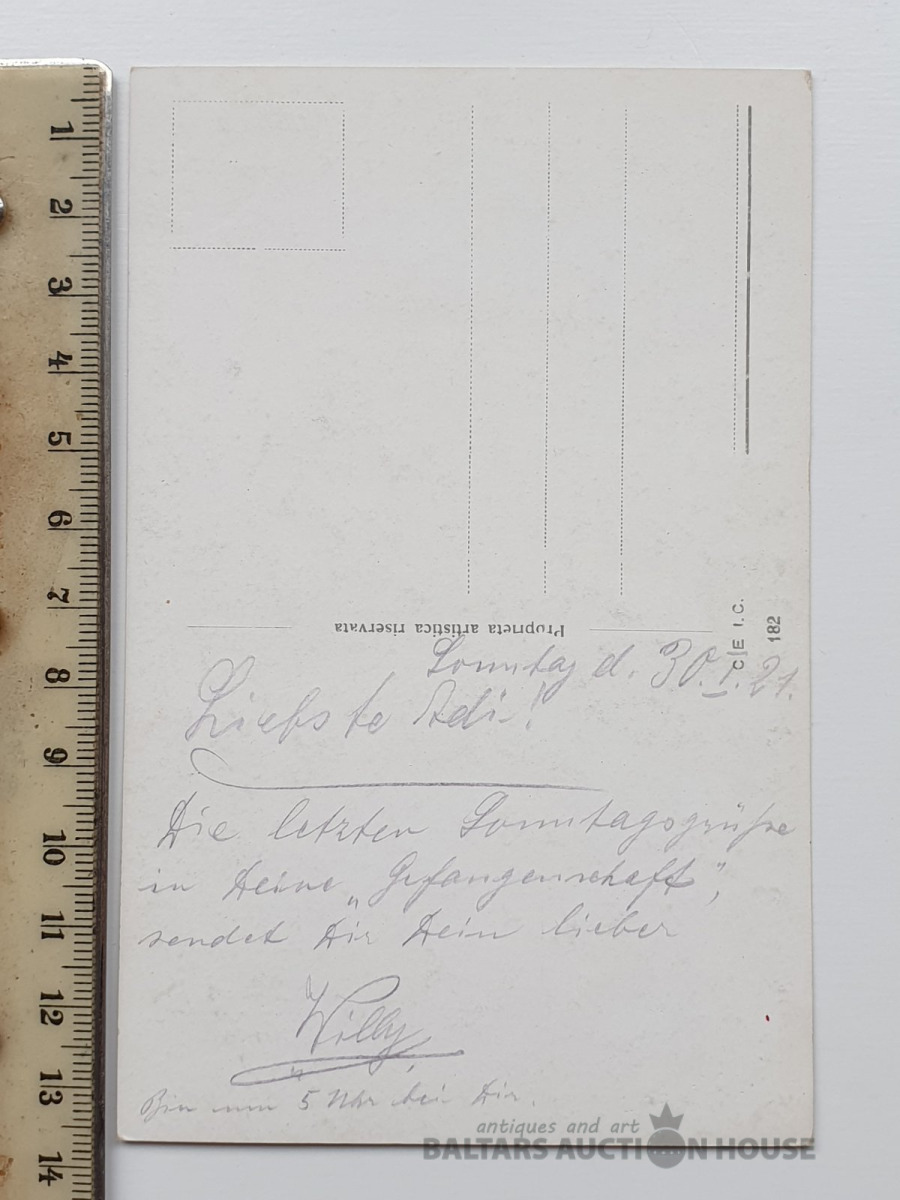 1
2
3
4
5
6
7
8
9
10
11
12
13
14
Proprieta artistica riservata
C E I. C.
182
Sonntag d. 30. I. 21.
Liebste Adi!
Die letzten Sonntagsgrüße
in Deine „Gefangenschaft”,
sendet Dir Dein lieber
Willy
Bin um 5 Uhr bei Dir.
antiques and art
BALTARS AUCTION HOUSE